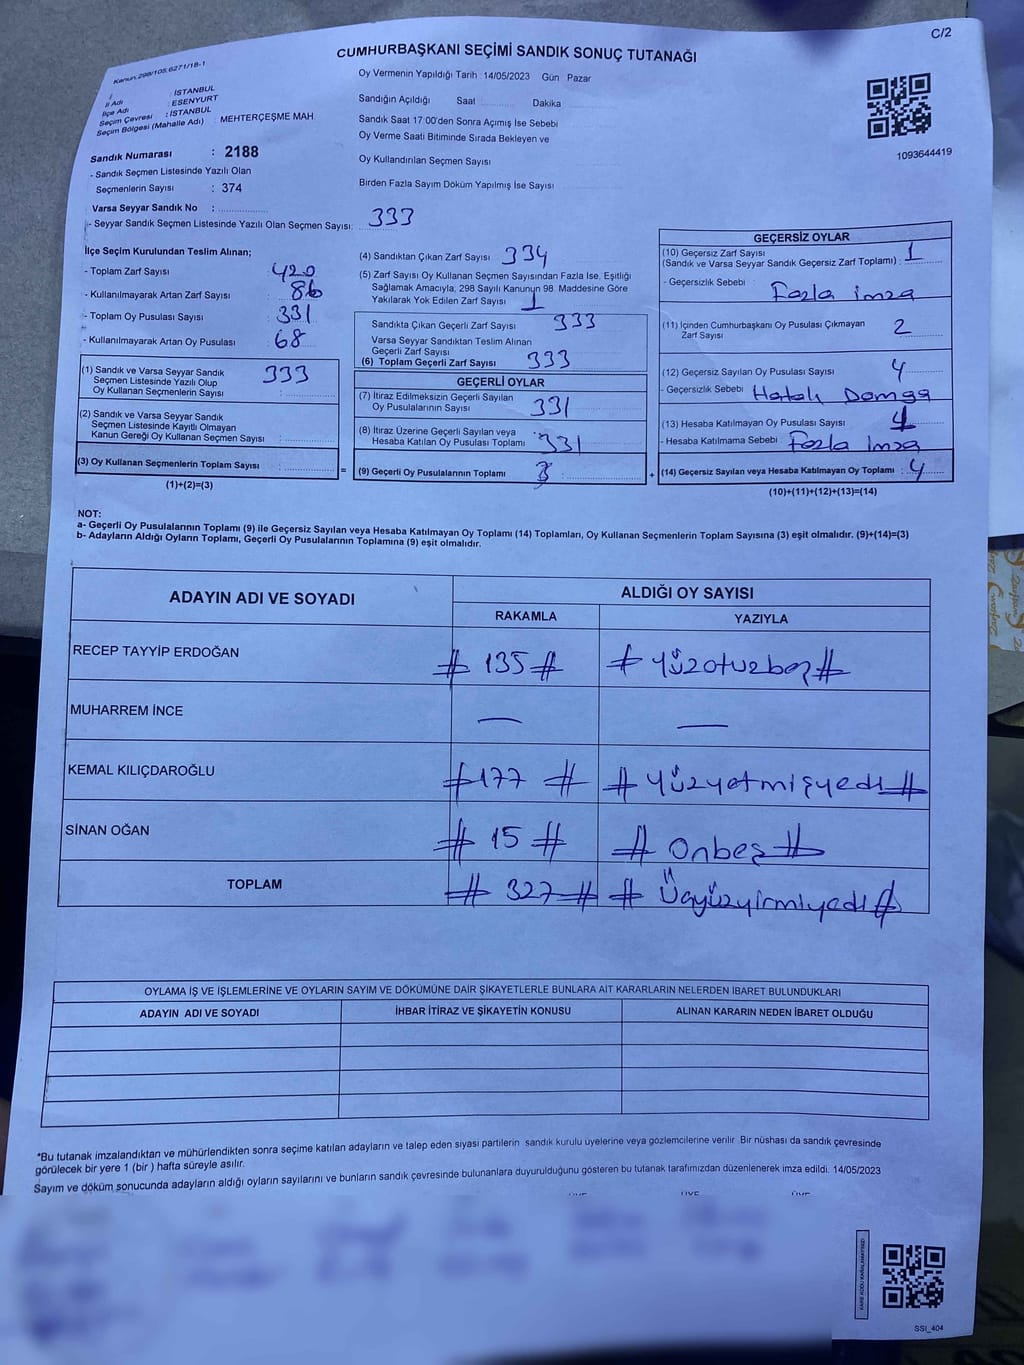 C/2
CUMHURBAŞKANI SEÇİMİ SANDIK SONUÇ TUTANAĞI
Kanun.298/105,6271/18-1
İl Adı : İSTANBUL
İlçe Adı : ESENYURT
Seçim Çevresi : İSTANBUL
Seçim Bölgesi (Mahalle Adı) MEHTERÇEŞME MAH
Sandık Numarası : 2188
- Sandık Seçmen Listesinde Yazılı Olan
Seçmenlerin Sayısı : 374
Varsa Seyyar Sandık No : ..................
- Seyyar Sandık Seçmen Listesinde Yazılı Olan Seçmen Sayısı: 333
Oy Vermenin Yapıldığı Tarih 14/05/2023 Gün Pazar
Sandığın Açıldığı Saat .......... Dakika
Sandık Saat 17:00'den Sonra Açımış İse Sebebi
Oy Verme Saati Bitiminde Sırada Bekleyen ve
Oy Kullandırılan Seçmen Sayısı
Birden Fazla Sayım Döküm Yapılmış İse Sayısı
1093644419
İlçe Seçim Kurulundan Teslim Alınan;
- Toplam Zarf Sayısı 420
- Kullanılmayarak Artan Zarf Sayısı 86
- Toplam Oy Pusulası Sayısı 331
- Kullanılmayarak Artan Oy Pusulası 68
(1) Sandık ve Varsa Seyyar Sandık 333
Seçmen Listesinde Yazılı Olup
Oy Kullanan Seçmenlerin Sayısı :
(2) Sandık ve Varsa Seyyar Sandık
Seçmen Listesinde Kayıtlı Olmayan
Kanun Gereği Oy Kullanan Seçmen Sayısı :
(3) Oy Kullanan Seçmenlerin Toplam Sayısı :
(1)+(2)=(3)
=
(4) Sandıktan Çıkan Zarf Sayısı 334
(5) Zarf Sayısı Oy Kullanan Seçmen Sayısından Fazla İse, Eşitliği
Sağlamak Amacıyla, 298 Sayılı Kanunun 98. Maddesine Göre
Yakılarak Yok Edilen Zarf Sayısı : 1
Sandıkta Çıkan Geçerli Zarf Sayısı 333
Varsa Seyyar Sandıktan Teslim Alınan
Geçerli Zarf Sayısı
(6) Toplam Geçerli Zarf Sayısı 333
GEÇERLİ OYLAR
(7) İtiraz Edilmeksizin Geçerli Sayılan
Oy Pusulalarının Sayısı : 331
(8) İtiraz Üzerine Geçerli Sayılan veya
Hesaba Katılan Oy Pusulası Toplamı : 331
(9) Geçerli Oy Pusulalarının Toplamı :
+
GEÇERSİZ OYLAR
(10) Geçersiz Zarf Sayısı
(Sandık ve Varsa Seyyar Sandık Geçersiz Zarf Toplamı) : 1
- Geçersizlik Sebebi : Fazla imza
(11) İçinden Cumhurbaşkanı Oy Pusulası Çıkmayan 2
Zarf Sayısı
(12) Geçersiz Sayılan Oy Pusulası Sayısı 4
- Geçersizlik Sebebi : Hatalı Damga
(13) Hesaba Katılmayan Oy Pusulası Sayısı :
- Hesaba Katılmama Sebebi : Fazla imza
(14) Geçersiz Sayılan veya Hesaba Katılmayan Oy Toplamı : 4
(10)+(11)+(12)+(13)=(14)
NOT:
a- Geçerli Oy Pusulalarının Toplamı (9) ile Geçersiz Sayılan veya Hesaba Katılmayan Oy Toplamı (14) Toplamları, Oy Kullanan Seçmenlerin Toplam Sayısına (3) eşit olmalıdır. (9)+(14)=(3)
b- Adayların Aldığı Oyların Toplamı, Geçerli Oy Pusulalarının Toplamına (9) eşit olmalıdır.
ADAYIN ADI VE SOYADI ALDIĞI OY SAYISI
RAKAMLA YAZIYLA
RECEP TAYYİP ERDOĞAN # 135 # # Yüzotuzbeş #
MUHARREM İNCE — —
KEMAL KILIÇDAROĞLU # 177 # # Yüzyetmişyedi #
SİNAN OĞAN # 15 # # Onbeş #
TOPLAM # 327 # # Üçyüzyirmiyedi #
OYLAMA İŞ VE İŞLEMLERİNE VE OYLARIN SAYIM VE DÖKÜMÜNE DAİR ŞİKAYETLERLE BUNLARA AİT KARARLARIN NELERDEN İBARET BULUNDUKLARI
ADAYIN ADI VE SOYADI İHBAR İTİRAZ VE ŞİKAYETİN KONUSU ALINAN KARARIN NEDEN İBARET OLDUĞU
*Bu tutanak imzalandıktan ve mühürlendikten sonra seçime katılan adayların ve talep eden siyasi partilerin sandık kurulu üyelerine veya gözlemcilerine verilir .Bir nüshası da sandık çevresinde
görülecek bir yere 1 (bir ) hafta süreyle asılır.
Sayım ve döküm sonucunda adayların aldığı oyların sayılarını ve bunların sandık çevresinde bulunanlara duyurulduğunu gösteren bu tutanak tarafımızdan düzenlenerek imza edildi. 14/05/2023
SSİ_404